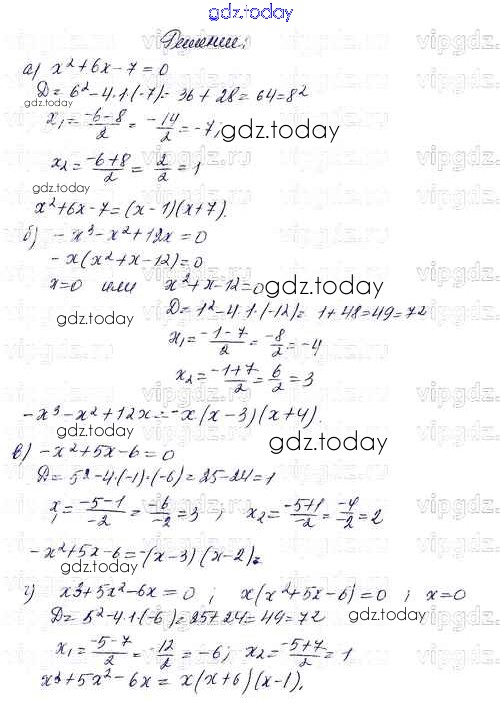 gdz.today
Решение:
а) x²+6x-7=0
D= 6²-4·1·(-7)= 36+28=64=8²
x₁= -6-8/2 = -14/2 = -7;
gdz.today
x₂= -6+8/2 = 2/2 = 1
gdz.today
x²+6x-7=(x-1)(x+7).
б) -x³-x²+12x=0
-x(x²+x-12)=0
x=0 или x²+x-12=0
gdz.today
D= 1²-4·1·(-12)= 1+48=49=7²
gdz.today
x₁= -1-7/2 = -8/2 = -4
x₂= -1+7/2 = 6/2 = 3
-x³-x²+12x=-x(x-3)(x+4).
gdz.today
gdz.today
в) -x²+5x-6=0
D= 5²-4·(-1)·(-6)=25-24=1
x₁= -5-1/-2 = -6/-2 = 3 ; x₂= -5+1/-2 = -4/-2 = 2
-x²+5x-6=-(x-3)(x-2).
gdz.today
г) x³+5x²-6x=0 ; x(x²+5x-6)=0 ; x=0
D= 5²-4·1·(-6)=25+24=49=7²
gdz.today
x₁= -5-7/2 = -12/2 = -6; x₂= -5+7/2 = 1
x³+5x²-6x= x(x+6)(x-1).
vipgdz.ru